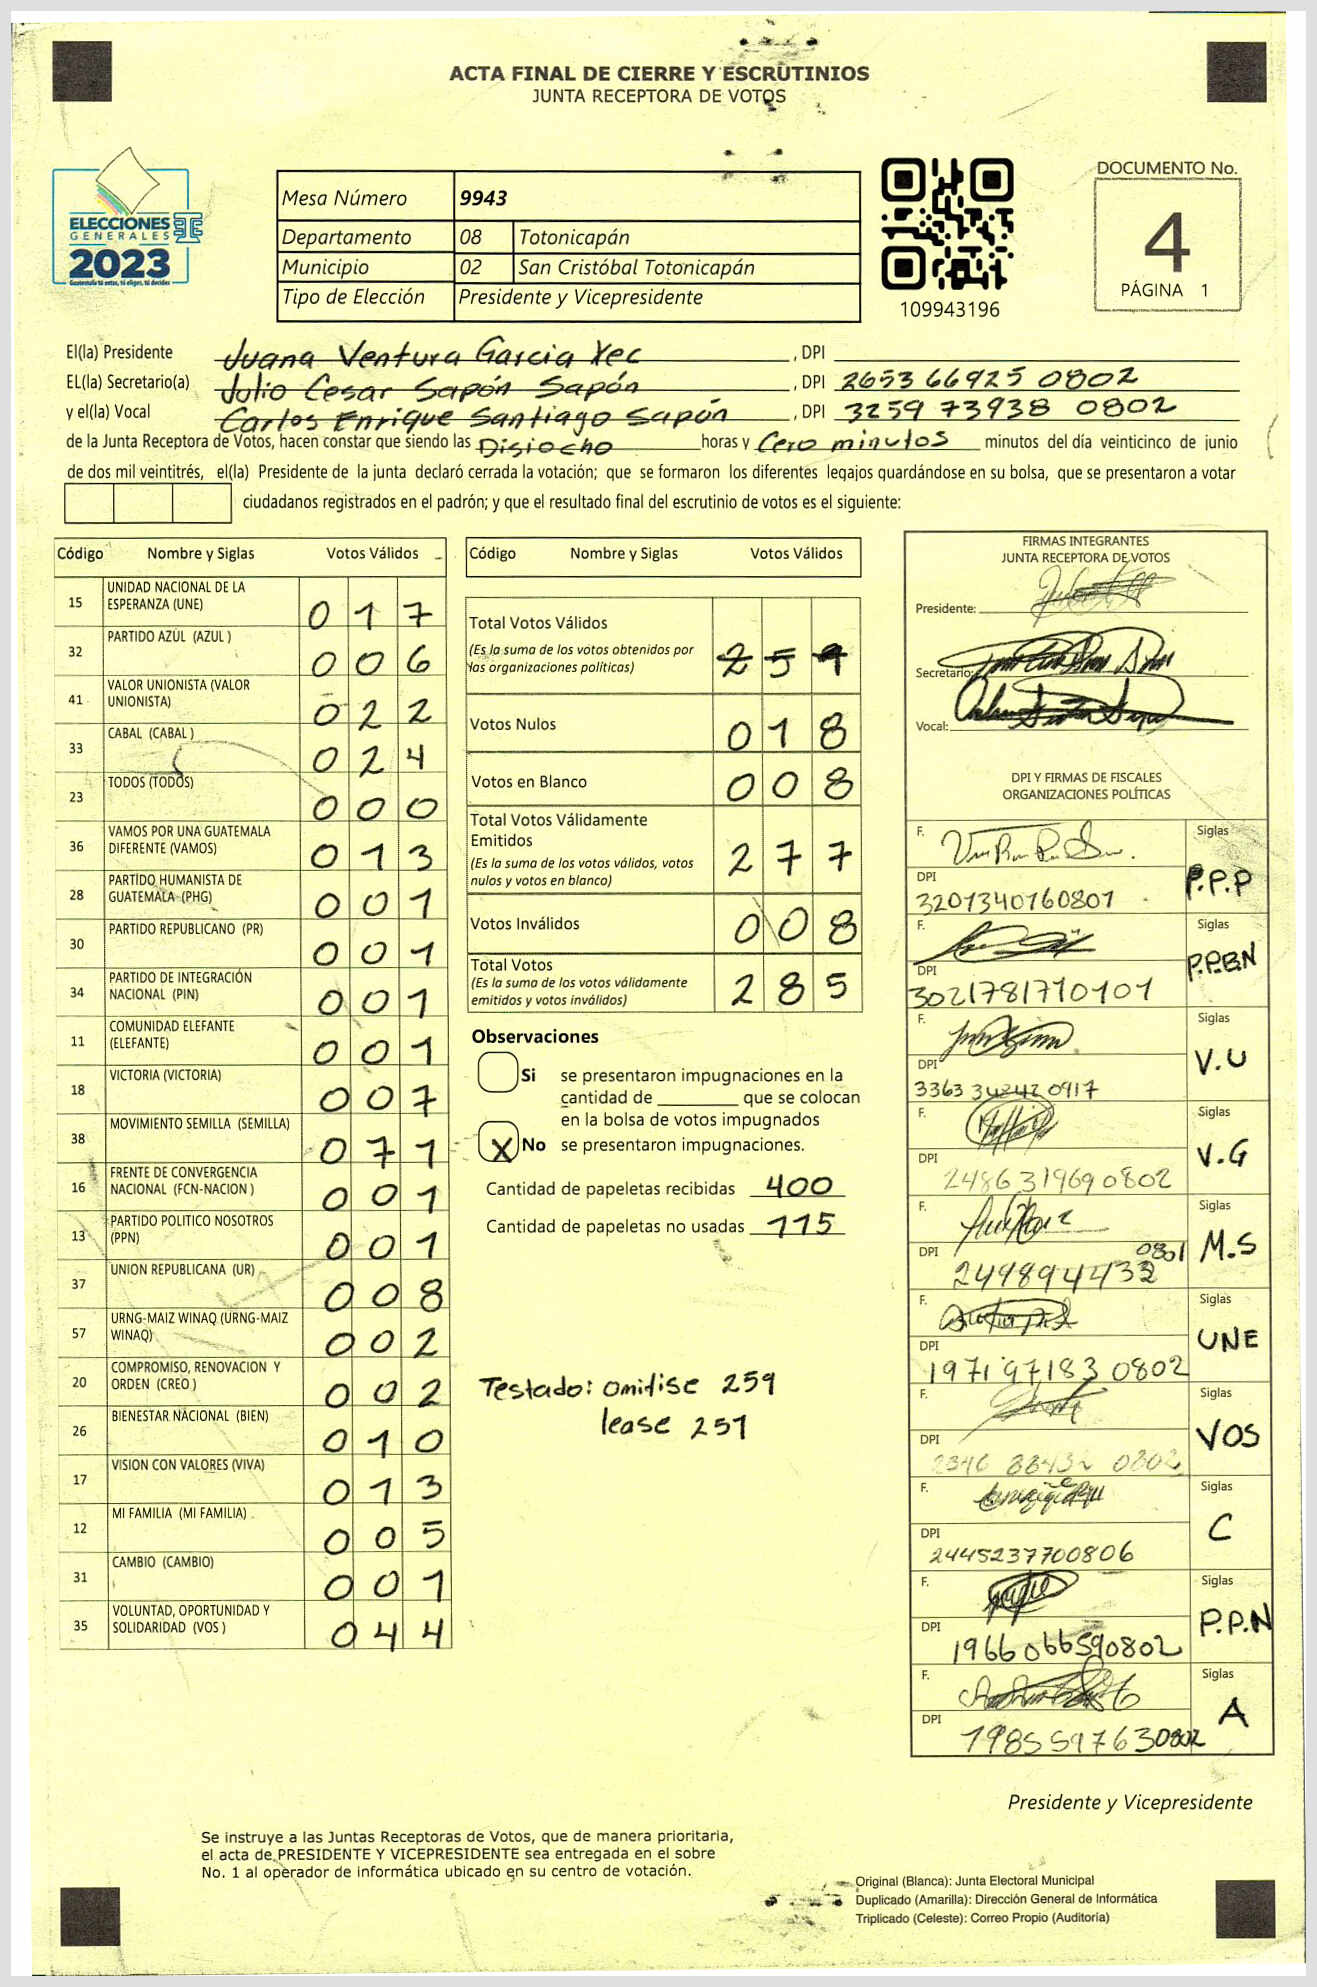 ACTA FINAL DE CIERRE Y ESCRUTINIOS
JUNTA RECEPTORA DE VOTOS
ELECCIONES
GENERALES
2023
Guatemala tú votas, tú eliges, tú decides
Mesa Número 9943
Departamento 08 Totonicapán
Municipio 02 San Cristóbal Totonicapán
Tipo de Elección Presidente y Vicepresidente
109943196
DOCUMENTO No.
4
PÁGINA 1
El(la) Presidente Juana Ventura Garcia Xec , DPI
EL(la) Secretario(a) Julio Cesar Sapón Sapón , DPI 2653 66925 0802
y el(la) Vocal Carlos Enrique Santiago Sapón , DPI 3259 73938 0802
de la Junta Receptora de Votos, hacen constar que siendo las Disiocho horas y Cero minutos minutos del día veinticinco de junio
de dos mil veintitrés, el(la) Presidente de la junta declaró cerrada la votación; que se formaron los diferentes legajos guardándose en su bolsa, que se presentaron a votar
ciudadanos registrados en el padrón; y que el resultado final del escrutinio de votos es el siguiente:
Código Nombre y Siglas Votos Válidos
15 UNIDAD NACIONAL DE LA ESPERANZA (UNE) 017
32 PARTIDO AZUL (AZUL ) 006
41 VALOR UNIONISTA (VALOR UNIONISTA) 022
33 CABAL (CABAL ) 024
23 TODOS (TODOS) 000
36 VAMOS POR UNA GUATEMALA DIFERENTE (VAMOS) 013
28 PARTIDO HUMANISTA DE GUATEMALA (PHG) 001
30 PARTIDO REPUBLICANO (PR) 001
34 PARTIDO DE INTEGRACIÓN NACIONAL (PIN) 001
11 COMUNIDAD ELEFANTE (ELEFANTE) 001
18 VICTORIA (VICTORIA) 007
38 MOVIMIENTO SEMILLA (SEMILLA) 071
16 FRENTE DE CONVERGENCIA NACIONAL (FCN-NACION ) 001
13 PARTIDO POLITICO NOSOTROS (PPN) 001
37 UNION REPUBLICANA (UR) 008
57 URNG-MAIZ WINAQ (URNG-MAIZ WINAQ) 002
20 COMPROMISO, RENOVACION Y ORDEN (CREO ) 002
26 BIENESTAR NACIONAL (BIEN) 010
17 VISION CON VALORES (VIVA) 013
12 MI FAMILIA (MI FAMILIA) 005
31 CAMBIO (CAMBIO) 001
35 VOLUNTAD, OPORTUNIDAD Y SOLIDARIDAD (VOS ) 044
Código Nombre y Siglas Votos Válidos
Total Votos Válidos
(Es la suma de los votos obtenidos por las organizaciones políticas) 259
Votos Nulos 018
Votos en Blanco 008
Total Votos Válidamente Emitidos
(Es la suma de los votos válidos, votos nulos y votos en blanco) 277
Votos Inválidos 008
Total Votos
(Es la suma de los votos válidamente emitidos y votos inválidos) 285
Observaciones
Si se presentaron impugnaciones en la
cantidad de ________ que se colocan
en la bolsa de votos impugnados
X No se presentaron impugnaciones.
Cantidad de papeletas recibidas 400
Cantidad de papeletas no usadas 115
Testado: omitise 259
lease 251
FIRMAS INTEGRANTES
JUNTA RECEPTORA DE VOTOS
Presidente:
Secretario:
Vocal:
DPI Y FIRMAS DE FISCALES
ORGANIZACIONES POLÍTICAS
F. Siglas P.P.P
DPI 3201340160801
F. Siglas P.P.B.N
DPI 3021781710101
F. Siglas V.U
DPI 3363 34242 0917
F. Siglas V.G
DPI 2486319690802
F. Siglas M.S
DPI 249894433 0801
F. Siglas UNE
DPI 1971 97183 0802
F. Siglas VOS
DPI 0802
F. Siglas C
DPI 2445237700806
F. Siglas P.P.N
DPI 1966066590802
F. Siglas A
DPI 1985597630802
Presidente y Vicepresidente
Se instruye a las Juntas Receptoras de Votos, que de manera prioritaria,
el acta de PRESIDENTE Y VICEPRESIDENTE sea entregada en el sobre
No. 1 al operador de informática ubicado en su centro de votación.
Original (Blanca): Junta Electoral Municipal
Duplicado (Amarilla): Dirección General de Informática
Triplicado (Celeste): Correo Propio (Auditoría)